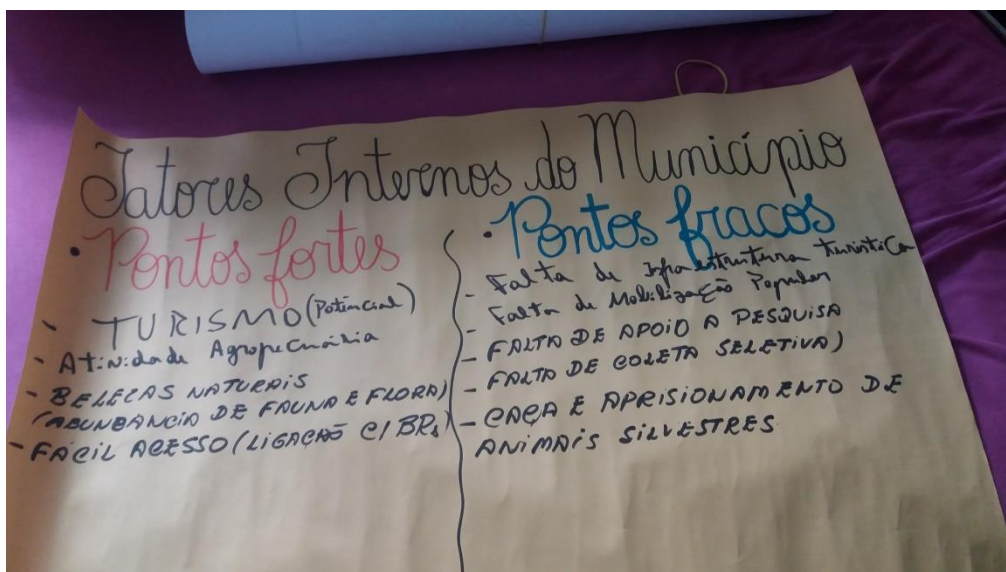 Fatores Internos do Município
• Pontos fortes
- TURISMO (Potencial)
- Atividade Agropecuária
- BELEZAS NATURAIS
(ABUNDÂNCIA DE FAUNA E FLORA)
- FÁCIL ACESSO (LIGAÇÃO C/ BRs)
• Pontos fracos
- Falta de Infraestrutura turística
- Falta de Mobilização Popular
- FALTA DE APOIO A PESQUISA
- FALTA DE COLETA SELETIVA)
- CAÇA E APRISIONAMENTO DE
ANIMAIS SILVESTRES